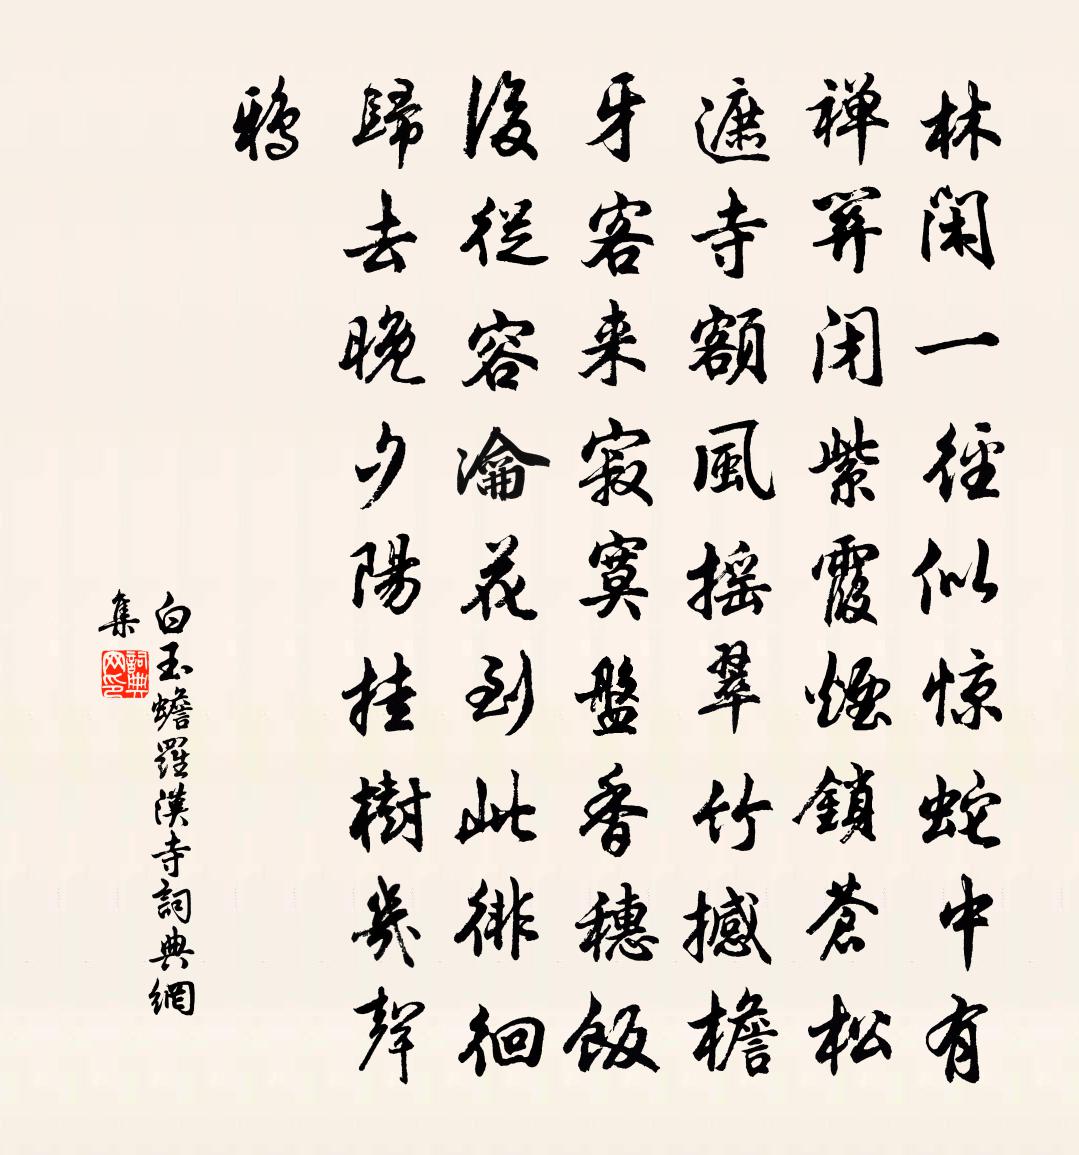 林閑一徑似惊蛇中有
禅關闭紫霞煙鎖蒼松
遮寺額風摇翠竹撼檐
牙客来寂寞盤香穗飯
後從容瀹花到此徘徊
歸去晚夕陽挂樹幾聲
鴉
白玉蟾羅漢寺詞典網
集
詞典
网印